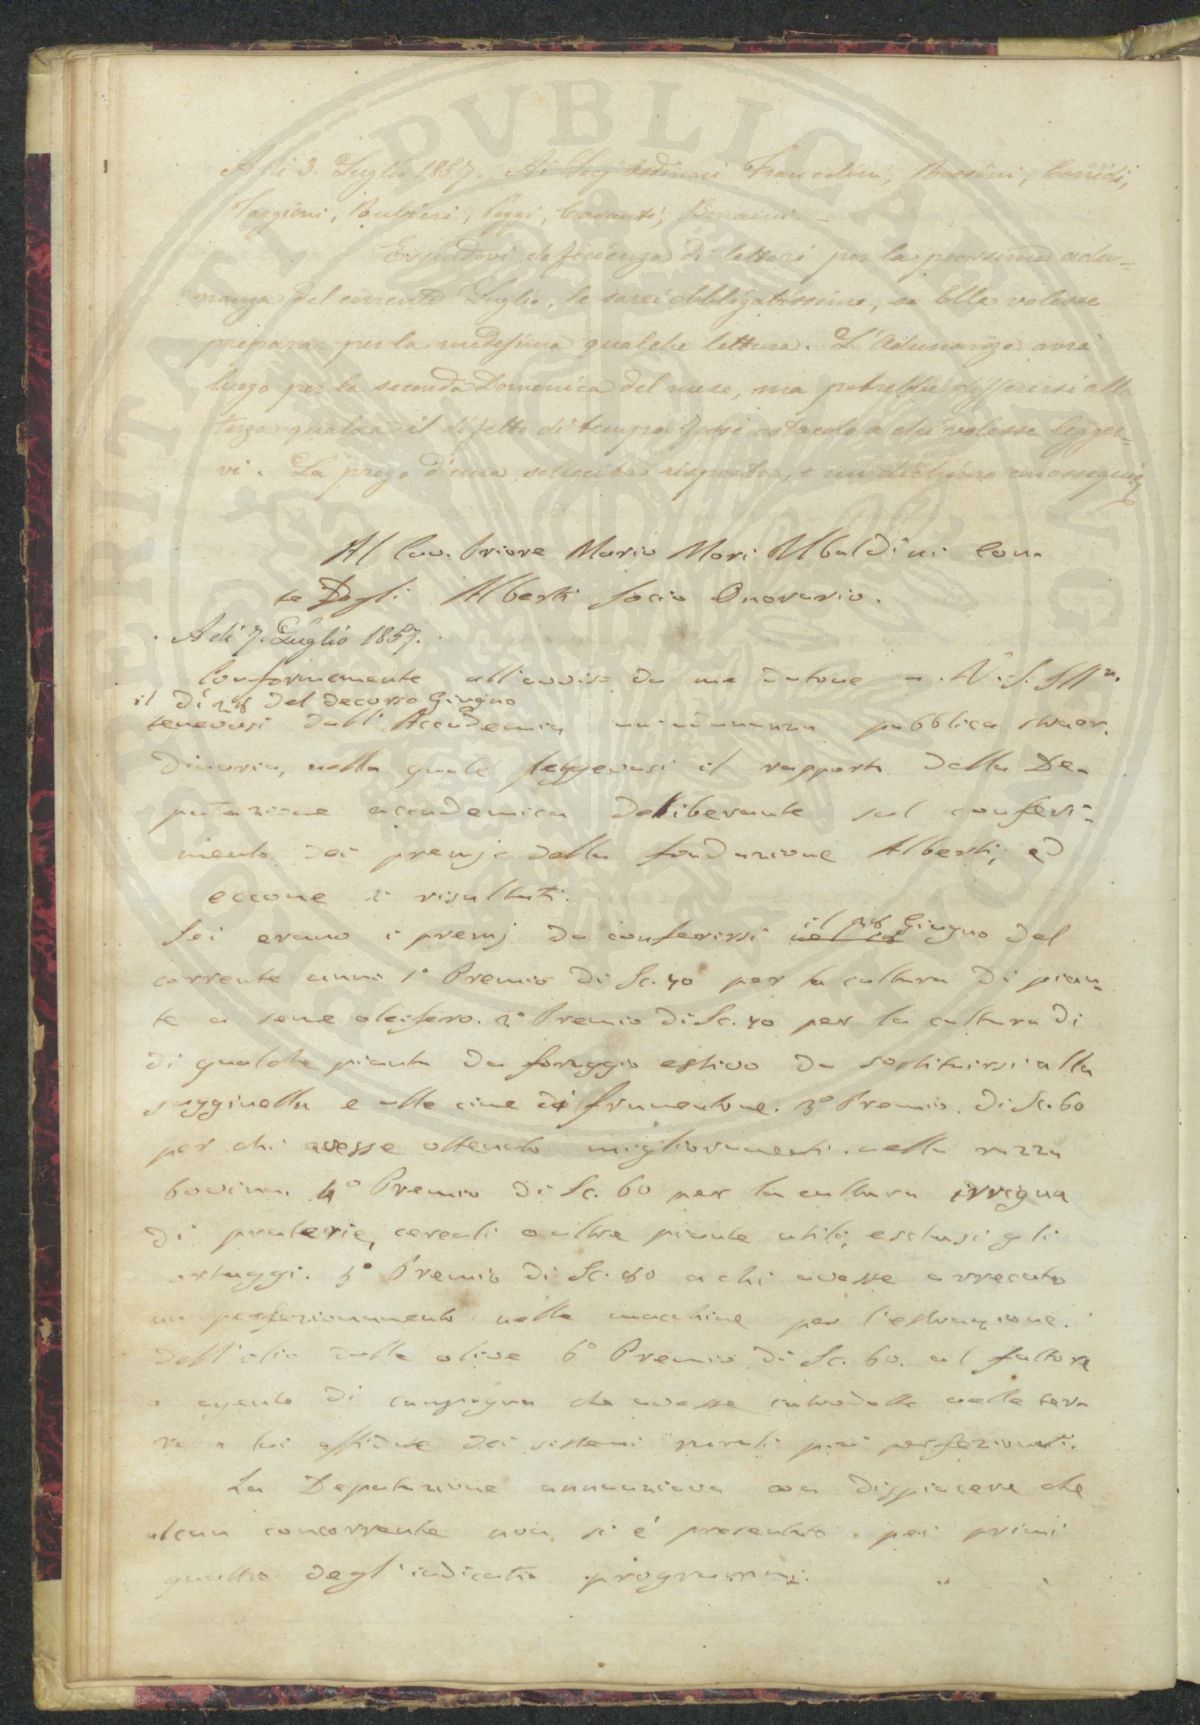 A di 3. Luglio 1857. Ai Socj Ordinari Francolini, Bassini, Corridi,
Targioni, Rubieri, Poggi, Casanti, Bonaini. –
Essendovi deficienza di letture per la prossima adu=
nanza del corrente Luglio, le sarei obbligatissimo, se Ella volesse
preparar per la medesima qualche lettura. L'Adunanza avrà
luogo per la seconda Domenica del mese, ma potrebbe differirsi alla
terza qualora il difetto di tempo fosse ostacolo a chi volesse legger-
vi. La prego d'una sollecita risposta, e mi dichiaro con ossequio
Al Cav. Priore Mario Mori Ubaldini Con-
te Degli Alberti Socio Onorario.
A di 7. Luglio 1857.
Conformemente all'avviso da me datone a V. S. Illma.
il dì 28 del decorso Giugno
tenevasi dall'Accademia un'adunanza pubblica straor-
dinaria, nella quale leggevasi il rapporto della De-
putazione accademica deliberante sul conferi-
mento dei premj della fondazione Alberti, ed
eccone i risultati.
Sei erano i premj da conferirsi il 28 Giugno del
corrente anno 1º Premio di Sc. 70 per la cultura di pian-
te a seme oleifero. 2º Premio di Sc. 70 per la cultura di
di qualche pianta da foraggio estivo da sostituirsi alla
sagginella e alle cime di frumentone. 3º Premio di Sc. 60
per chi avesse ottenuto miglioramenti nella razza
bovina. 4º Premio di Sc. 60 per la cultura irrigua
di praterie, cereali o altre piante utili, esclusi gli
ortaggi. 5º Premio di Sc. 80 a chi avesse arrecato
un perfezionamento nelle macchine per l'estrazione
dell'olio dalle olive 6º Premio di Sc. 60. al fattore
o agente di campagna che avesse introdotto nelle terre
a lui affidate dei sistemi rurali più perfezionati.
La Deputazione annunziava con dispiacere che
alcun concorrente non si é presentato pei primi
quattro degl'indicati programmi.
PVBLICAE